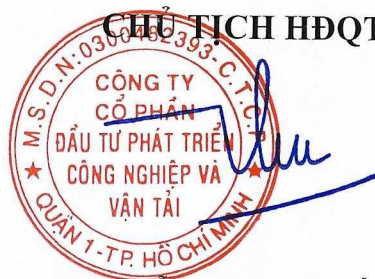 CHỦ TỊCH HĐQT
M.S.D.N:0300482393-C.T.C.P
CÔNG TY
CỔ PHẦN
ĐẦU TƯ PHÁT TRIỂN
CÔNG NGHIỆP VÀ
VẬN TẢI
QUẬN 1-T.P. HỒ CHÍ MINH